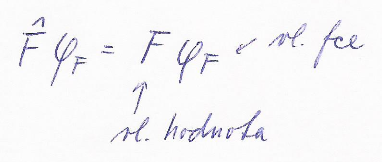 F̂ φ_F = F φ_F ↙ vl. fce
↑
vl. hodnota